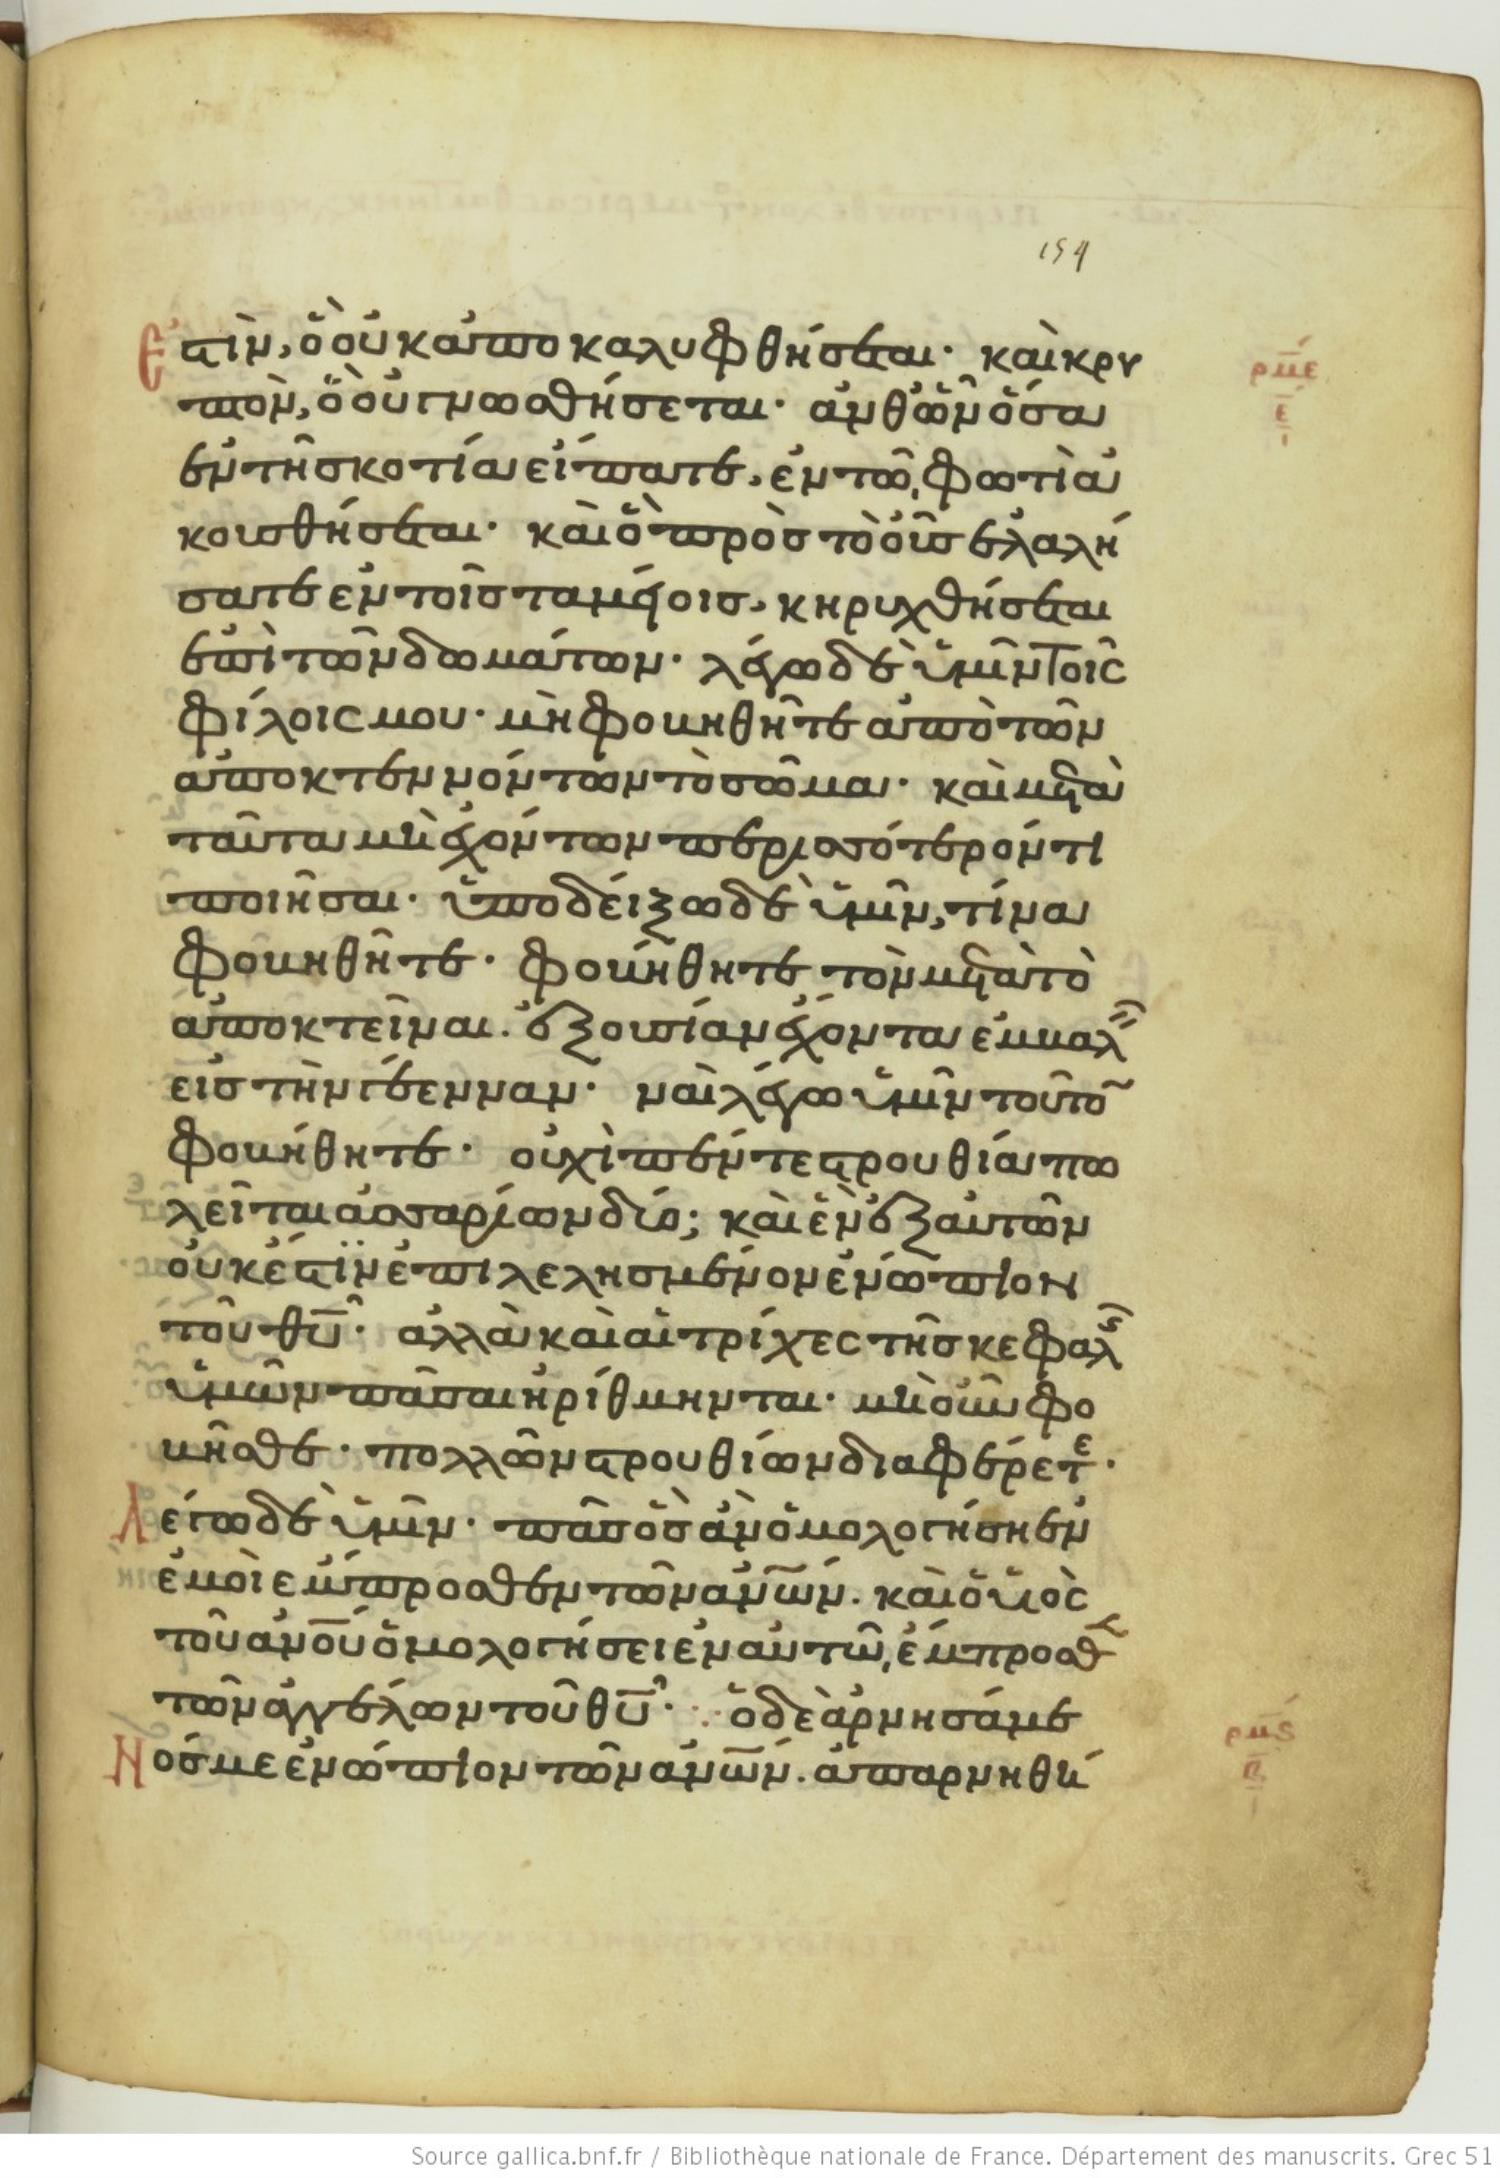 159
Ἐστὶν, ὃ οὐκ ἀποκαλυφθήσεται· καὶ κρυ
πτὸν, ὃ οὐ γνωσθήσεται· ἀνθ ὧν ὅσα
ἐν τῆ σκοτία εἴπατε, ἐν τῶ φωτὶ ἀ
κουσθήσεται· καὶ ὃ πρὸς τὸ οὖς ἐλαλή
σατε ἐν τοῖς ταμείοις, κηρυχθήσεται
ἐπὶ τῶν δωμάτων· λέγω δὲ ὑμῖν τοῖς
φίλοις μου· μὴ φοβηθῆτε ἀπὸ τῶν
ἀποκτεννόντων τὸ σῶμα· καὶ μετὰ
ταῦτα μὴ ἐχόντων περισσότερόν τι
ποιῆσαι· ὑποδείξω δὲ ὑμῖν, τίνα
φοβηθῆτε· φοβήθητε τὸν μετὰ τὸ
ἀποκτεῖναι. ἐξουσίαν ἔχοντα ἐμβαλ
εἰς τὴν γέενναν· ναὶ λέγω ὑμῖν τοῦτο
φοβήθητε· οὐχὶ πέντε στρουθία πω
λεῖται ἀσσαρίων δύο; καὶ ἓν ἐξ αὐτῶν
οὐκ ἔστϊν ἐπιλελησμένον ἐνώπιον
τοῦ θυ· ἀλλὰ καὶ αἱ τρίχες τῆς κεφαλ
ὑμῶν πᾶσαι ἠρίθμηνται· μὴ οὖν φο
βῆσθε· πολλῶν στρουθίων διαφέρετε·
Λέγω δὲ ὑμῖν· πᾶς ὃς ἂν ὁμολογήση ἐν
ἐμοὶ ἔμπροσθεν τῶν ἀνων. καὶ ὁ υἱὸς
τοῦ ἀνου ὁμολογήσει ἐν αὐτῶ, ἔμπροσθ
τῶν ἀγγέλων τοῦ θυ· ὁ δὲ ἀρνησάμε
Νός με ἐνώπιον τῶν ἀνων. ἀπαρνηθή
ρμε
ε
ρμς
Source gallica.bnf.fr / Bibliothèque nationale de France. Département des manuscrits. Grec 51